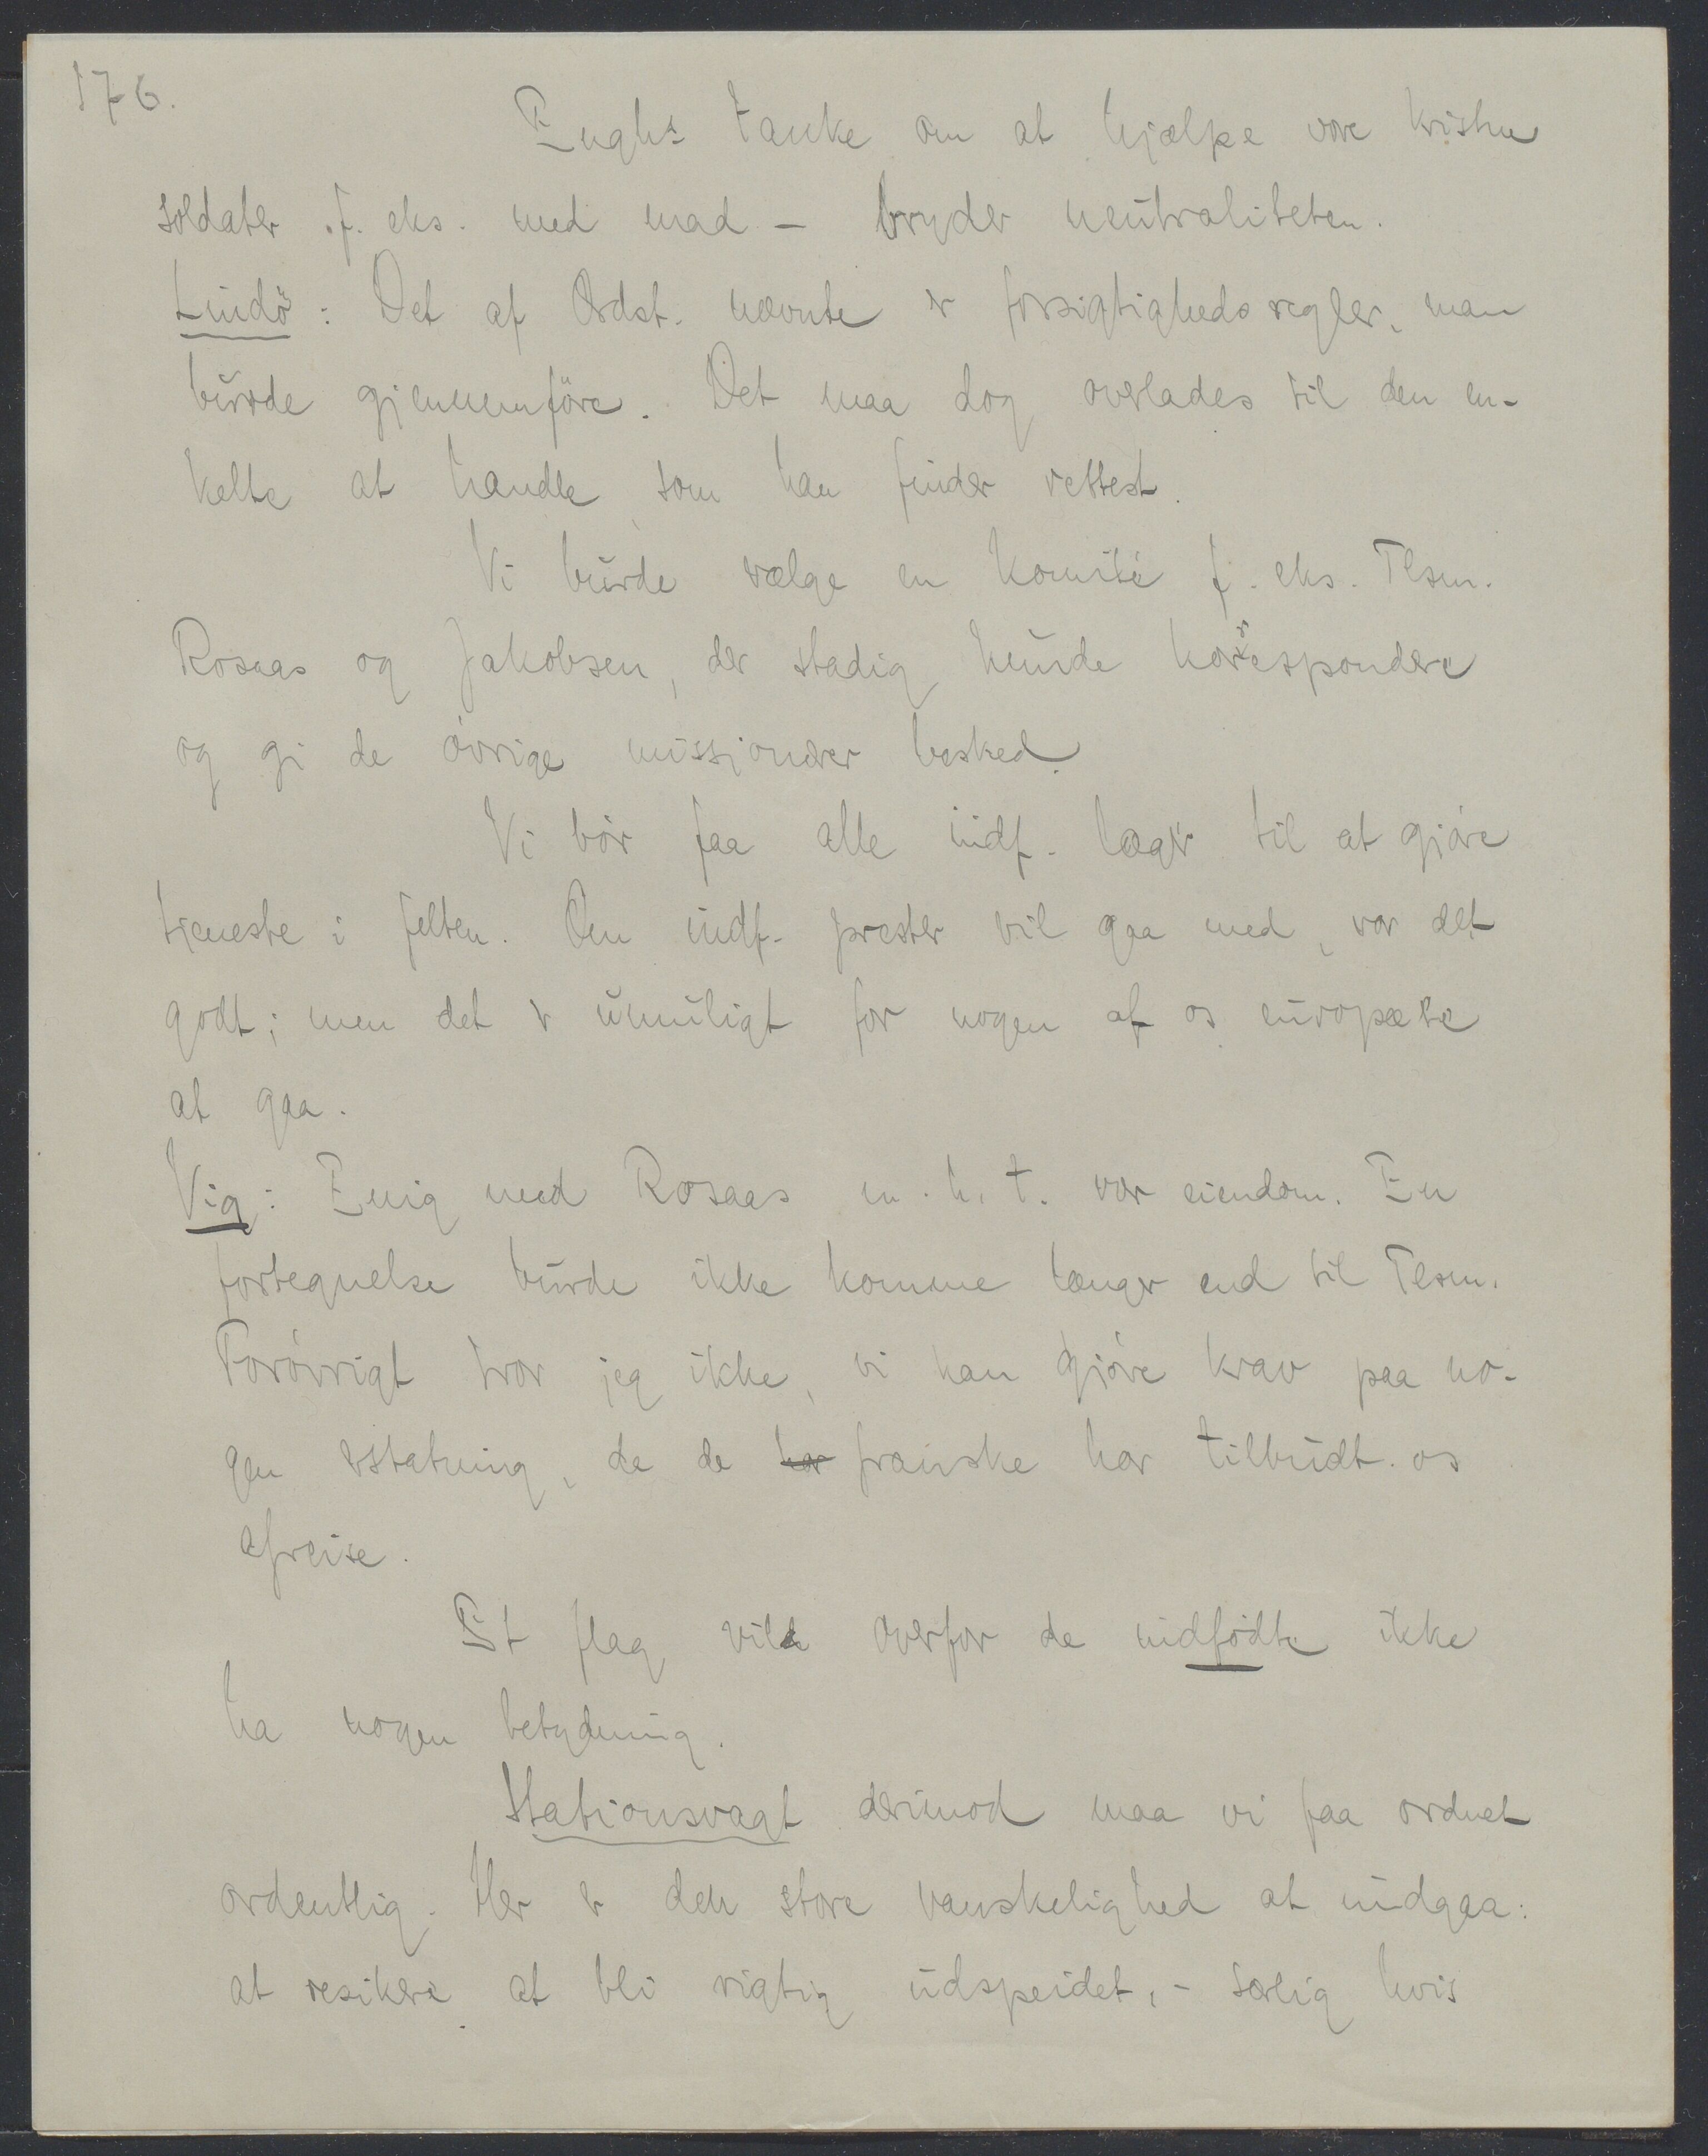 176.
Enghs tanke om at hjælpe vore kristne
soldater f. eks. med mad – bryder neutraliteten.
Lindö: Det af Ordst. nævnte er forsigtighedsregler, man
burde gjennemföre. Det maa dog overlades til den en-
kelte at handle som han finder rettest.
Vi burde vælge en komité f. eks. Tlsm.
Rosaas og Jakobsen, der stadig kunde korrespondere
og gi de övrige missjonærer besked.
Vi bör faa alle indf. læger til at gjöre
tjeneste i felten. Om indf. prester vil gaa med, var det
godt; men det er umuligt for nogen af os europæere
at gaa.
Vig: Enig med Rosaas m. h. t. vor eiendom. En
fortegnelse burde ikke komme længer end til Tlsm.
Forövrigt tror jeg ikke, vi kan gjöre krav paa no-
gen erstatning, da de har franske har tilbudt os
afreise.
Et flag vilde overfor de indfödte ikke
ha nogen betydning.
Stationsvagt derimod maa vi faa ordnet
ordentlig. Her er den store vanskelighed at undgaa:
at resikere at bli rigtig udspeidet, – særlig hvis